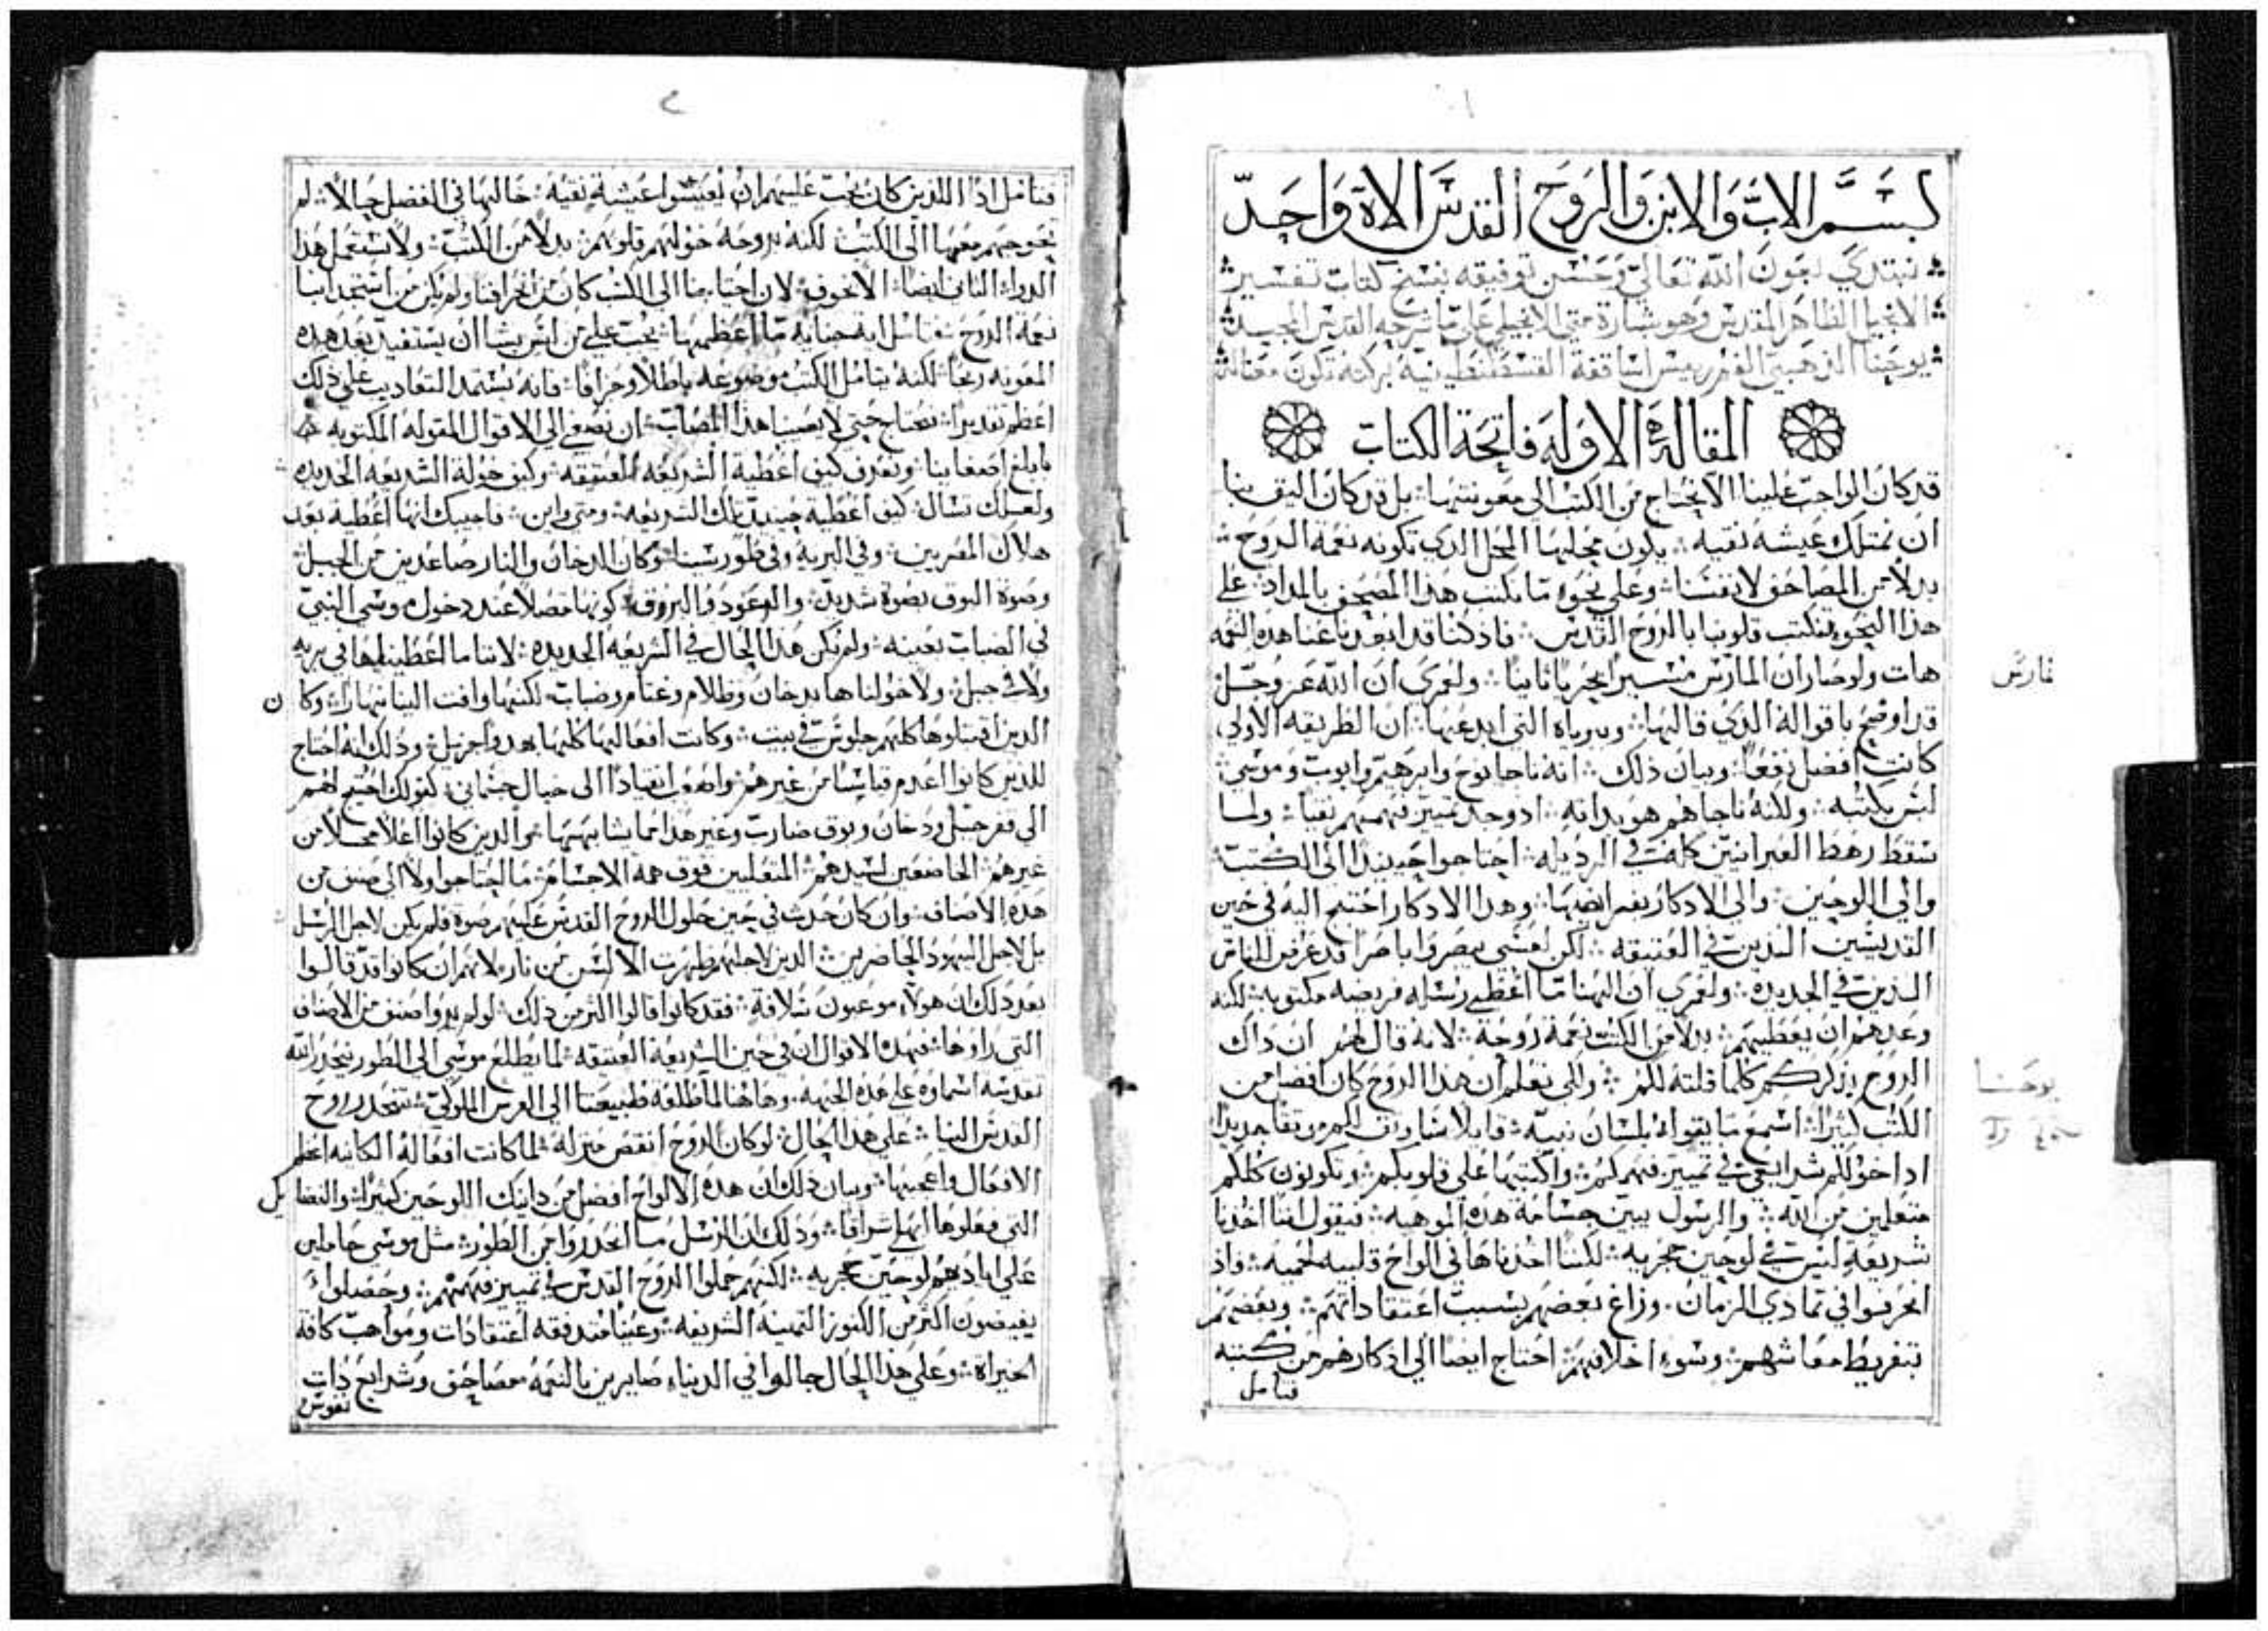 بسم الاب والابن والروح القدس الاه واحد
نبتدي بعون الله تعالي وحسن توفيقه بنسخ كتاب تفسير
الانجيل الطاهر المقدس وهو بشارة متي الانجيلي علي ما شرحه القديس الجيد
يوحنا الذهبي الفم رييس اساقفة القسطنطينية بركته تكون معنا
المقالة الاوله فاتحة الكتاب
قد كان الواجب علينا الا نحتاج من الكتب الي معونتها بل قد كان اليق بنا
ان نمتلك عيشه نقيه يكون محلها المحل الذي تكونه نعمة الروح
بدلا من المصاحف لانفسنا وعلي نحو ما نكتب هذا المصحف بالمداد علي
هذا النحو تكتب قلوبنا بالروح القدس فاذ كنا قد ابعدنا عنا هذه النعمه
هات ولو صار ان المارس مسير اخر يا ثانيا ولعمري ان الله عز وجل
قد اوضح باقواله الذي قالها وبدرياه التي ابدعها ان الطريقه الاولي
كانت افضل نفعا وبيان ذلك انه ناجا نوح وابرهيم وايوب وموسي
ليس بكتبه ولكنه ناجاهم هو بداته ادوجد تمييز فهمهم نقيا ولما
سقط رهط العبرانيين كلهم في الرديله احتاحوا حينيدا الي الكتب
والي اللوحين والي الادكار بعرايضها وهدا الادكار احتيج اليه في حين
القديسين الدين في العتيقه لكن لعسي مبصروا باصرا قد عرض للناس
الذين في الجديده ولعمري ان الهنا ما اعطي رسله فريضه مكتوبه لكنه
وعدهم ان يعطيهم بدلا من الكتب نعمة روحة لانه قال لهم ان داك
الروح يذكركم كلما قلته لكم والي تعلم ان هدا الروح كان افضل من
الكتب كثيرا اسمع ما يقوله بلسان نبيه قايلا ساوثق لكم وثقا جديدا
اداخولكم شرايعي في تمييز فهمكم واكتبها علي قلوبكم وتكونون كلكم
متعلمين من الله والرسول يبين جسامة هده الموهبه فيقول اننا اخذنا
شريعة ليس في لوحين حجريه لكننا اخذناها في الواح قلبيه لحميه فاذ
انحرفوا في تمادي الزمان وزاغ بعضهم بسبب اعتقاداتهم وبعضهم
بتفريط معاشهم وسوء اخلاقهم احتاج ايضا الي اذكارهم من كتبه
فتامل
مارس
يوحنا
فتامل اذا الذين كان يجب عليهم ان يعيشوا عيشة نقيه حالها في الفضل حالا لم
تحوجهم معها الي الكتب لكنه بروحه خولهم قلوبهم بدلا من الكتب ولا نستعمل هذا
الدواء الثاني ايضا
نعمة الروح
المعونه ربحا لكنه يتامل الكتب موضوعه باطلا وجزافا فانه يستمد التعاديب علي ذلك
اعظم تقديرا فنحتاج حتي لا يصيبنا هدا المصاب ان نصغي الي الاقوال المقوله المكتوبه
بابلغ اصغاينا ونعرف كيف اعطية الشريعه العتيقه وكيف خولة الشريعه الجديده
ولعلك تسال كيف اعطية حينيد تلك الشريعه ومتي واين فاجيبك انها اعطية بعد
هلاك المصريين وفي البريه وفي طور سينا وكان الدخان والنار صاعدين من الجبل
وصوة البوق بصوة شديد والرعود والبروق كونها متصلا عند دخول موسي النبي
في الضباب بعينه ولم يكن هذا الحال في الشريعه الجديده لاننا ما اعطيناها في بريه
ولا في جبل ولا خولناها بدخان وظلام وغمام وضباب لكنها وافت الينا نهارا وكان
الدين اقتبلوها كلهم جلوس في بيت وكانت افعالها كلها بهدوا جزيل وذلك انه احتاج
للذين كانوا اعدم قياسا من غيرهم واصعب انقيادا الي خيال جسماني كقولك احتيج لهم
الي قفر جبل ودخان وبوق ضارب وغير هدا مما يشابهها والدين كانوا اعلا محلا من
غيرهم الخاضعين لسيدهم المتعليين فوق همة الاجسام ما احتاجوا ولا الي صنف من
هذه الاصناف وان كان حدث في حين حلول الروح القدس عليهم صوة فلم يكن لاجل الرسل
بل لاجل اليهود الحاضرين الدين لاجلهم ظهرت الالسن من نار لانهم ان كانوا قد قالوا
بعد دلك ان هولاء موعبون سلافة فقد كانوا قالوا اكثر من ذلك لو لم يروا صنف من الاصناف
التي راوها فهده الاقوال ان في حين الشريعة العتيقه لما يطلع موسي الي الطور ينحدر الله
تقدسة اسماوه علي هذه الجهه وهاهنا لما طلعه طبيعتنا الي العرش الملوكي تنحدر روح
القدس الينا علي هدا الحال لو كان الروح انقص منزله لما كانت افعاله الكاينه اعظم
الافعال واعجبها وبيان ذلك ان هده الالواح افضل من دانيك اللوحين كثيرا والفضايل
التي فعلوها ابها اشرافا وذلك ان الرسل ما انحدروا من الطور مثل موسي حاملين
علي اياديهم لوحين حجريه لكنهم حملوا الروح القدس في تمييز فهمهم وحصلوا
يفيضون اكثر من الكنوز الثمينة الشريفه وعينا متدفقه اعتقادات ومواهب كافة
الخيراة وعلي هذا الحال جالوا في الدنياء صايرين بالنعمه مصاحف وشرايع ذات
نفوس